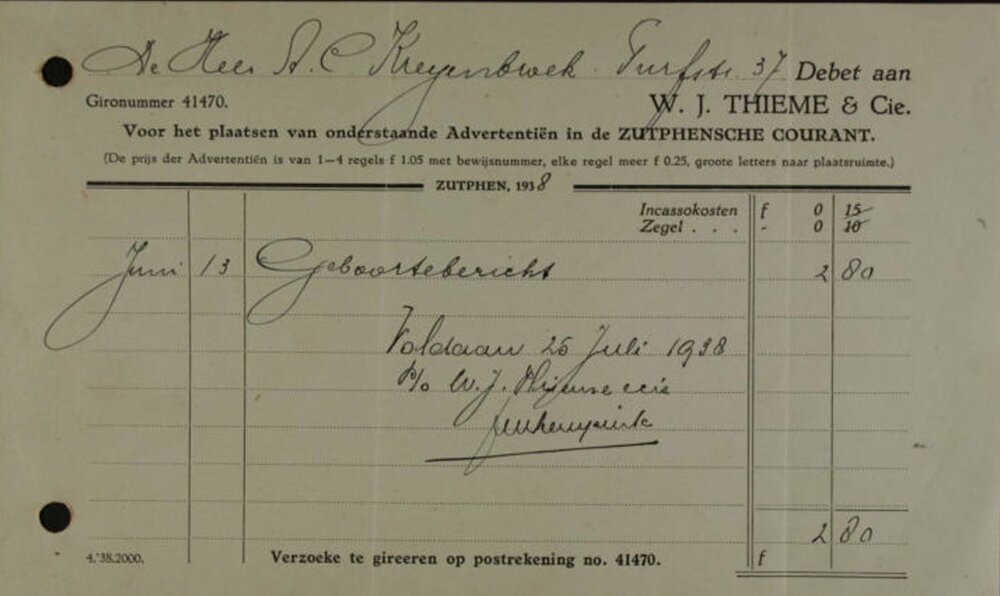 De Heer A. C. Kreyenbroek Turfstr. 37 Debet aan
Gironummer 41470. W. J. THIEME & Cie.
Voor het plaatsen van onderstaande Advertentiën in de ZUTPHENSCHE COURANT.
(De prijs der Advertentiën is van 1—4 regels f 1.05 met bewijsnummer, elke regel meer f 0.25, groote letters naar plaatsruimte.)
ZUTPHEN, 1938
Incassokosten f 0 15
Zegel . . . - 0 10
Juni 13 Geboortebericht 2 80
Voldaan 25 Juli 1938
P/o W. J. Thieme & Cie
2 80
4.'38.2000. Verzoeke te gireeren op postrekening no. 41470. f